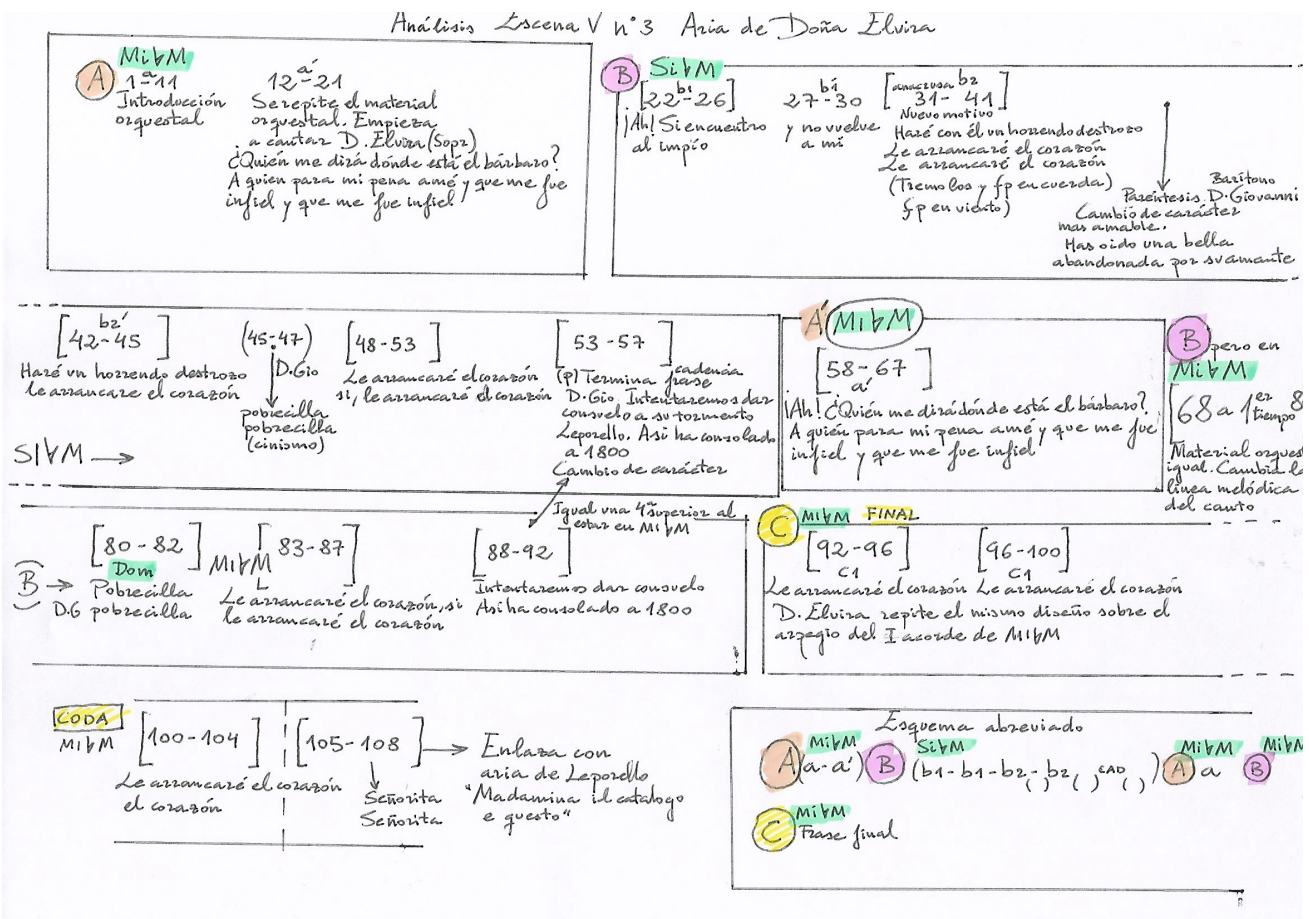 Análisis Escena V nº3 Aria de Doña Elvira
A
MibM
a
1-11
Introducción
orquestal
a'
12-21
Se repite el material
orquestal. Empieza
a cantar D. Elvira (Sopr)
¿Quién me dirá dónde está el bárbaro?
A quien para mi pena amé y que me fue
infiel y que me fue infiel
B
SibM
b1
[22-26]
¡Ah! Si encuentro
al impío
b1
27-30
y no vuelve
a mí
[anacrusa b2
31-41]
Nuevo motivo
Haré con él un horrendo destrozo
Le arrancaré el corazón
Le arrancaré el corazón
(Tremolos y fp en cuerda)
fp en viento)
Barítono
Paréntesis D. Giovanni
Cambio de carácter
mas amable.
Has oido una bella
abandonada por su amante
b2'
[42-45]
Haré un horrendo destrozo
le arrancare el corazón
(45-47)
D.Gio
pobrecilla
pobrecilla
(cinismo)
[48-53]
Le arrancaré el corazón
si, le arrancaré el corazón
[53-57]
cadencia
(p) Termina frase
D.Gio. Intentaremos dar
consuelo a su tormento
Leporello. Asi ha consolado
a 1800
Cambio de carácter
SIbM
A' MIbM
[58-67]
a'
¡Ah! ¿Quién me dirá dónde está el bárbaro?
A quién para mi pena amé y que me fue
infiel y que me fue infiel
B pero en
MibM
[68 a 1er tiempo 8
Material orques
igual. Cambia l
línea melódica
del canto
B
[80-82]
Dom
Pobrecilla
D.G pobrecilla
MIbM
[83-87]
Le arrancaré el corazón, si
le arrancaré el corazón
Igual una 4ª superior al
estar en MIbM
[88-92]
Intentaremos dar consuelo
Asi ha consolado a 1800
C MIbM FINAL
[92-96]
C1
Le arrancaré el corazón
[96-100]
C1
Le arrancaré el corazón
D. Elvira repite el mismo diseño sobre el
arpegio del I acorde de MIbM
CODA
MIbM
[100-104]
Le arrancaré el corazón
el corazón
[105-108]
Señorita
Señorita
Enlaza con
aria de Leporello
"Madamina il catalogo
e questo"
Esquema abreviado
MibM SibM MibM MibM
A (a-a') B (b1-b1-b2-b2 ( ) ( ) CAD ( )) A a B
C MibM
Frase final